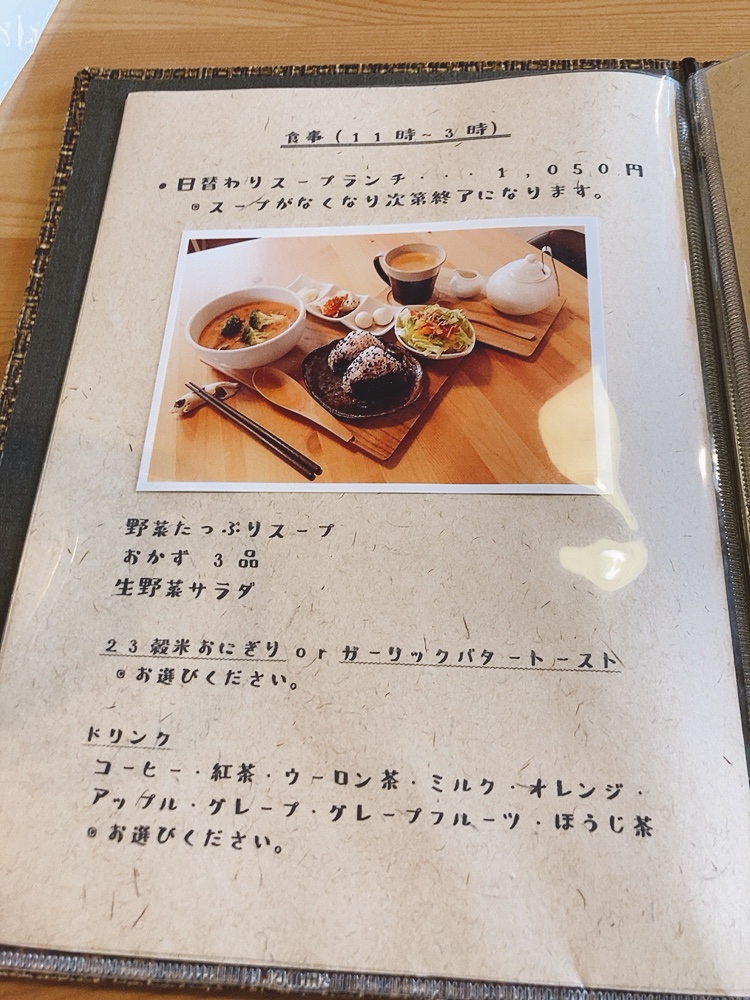 食事(11時~3時)
•日替わりスープランチ・・・1,050円
◎スープがなくなり次第終了になります。
野菜たっぷりスープ
おかず 3品
生野菜サラダ
23穀米おにぎり or ガーリックバタートースト
◎お選びください。
ドリンク
コーヒー・紅茶・ウーロン茶・ミルク・オレンジ・
アップル・グレープ・グレープフルーツ・ほうじ茶
◎お選びください。